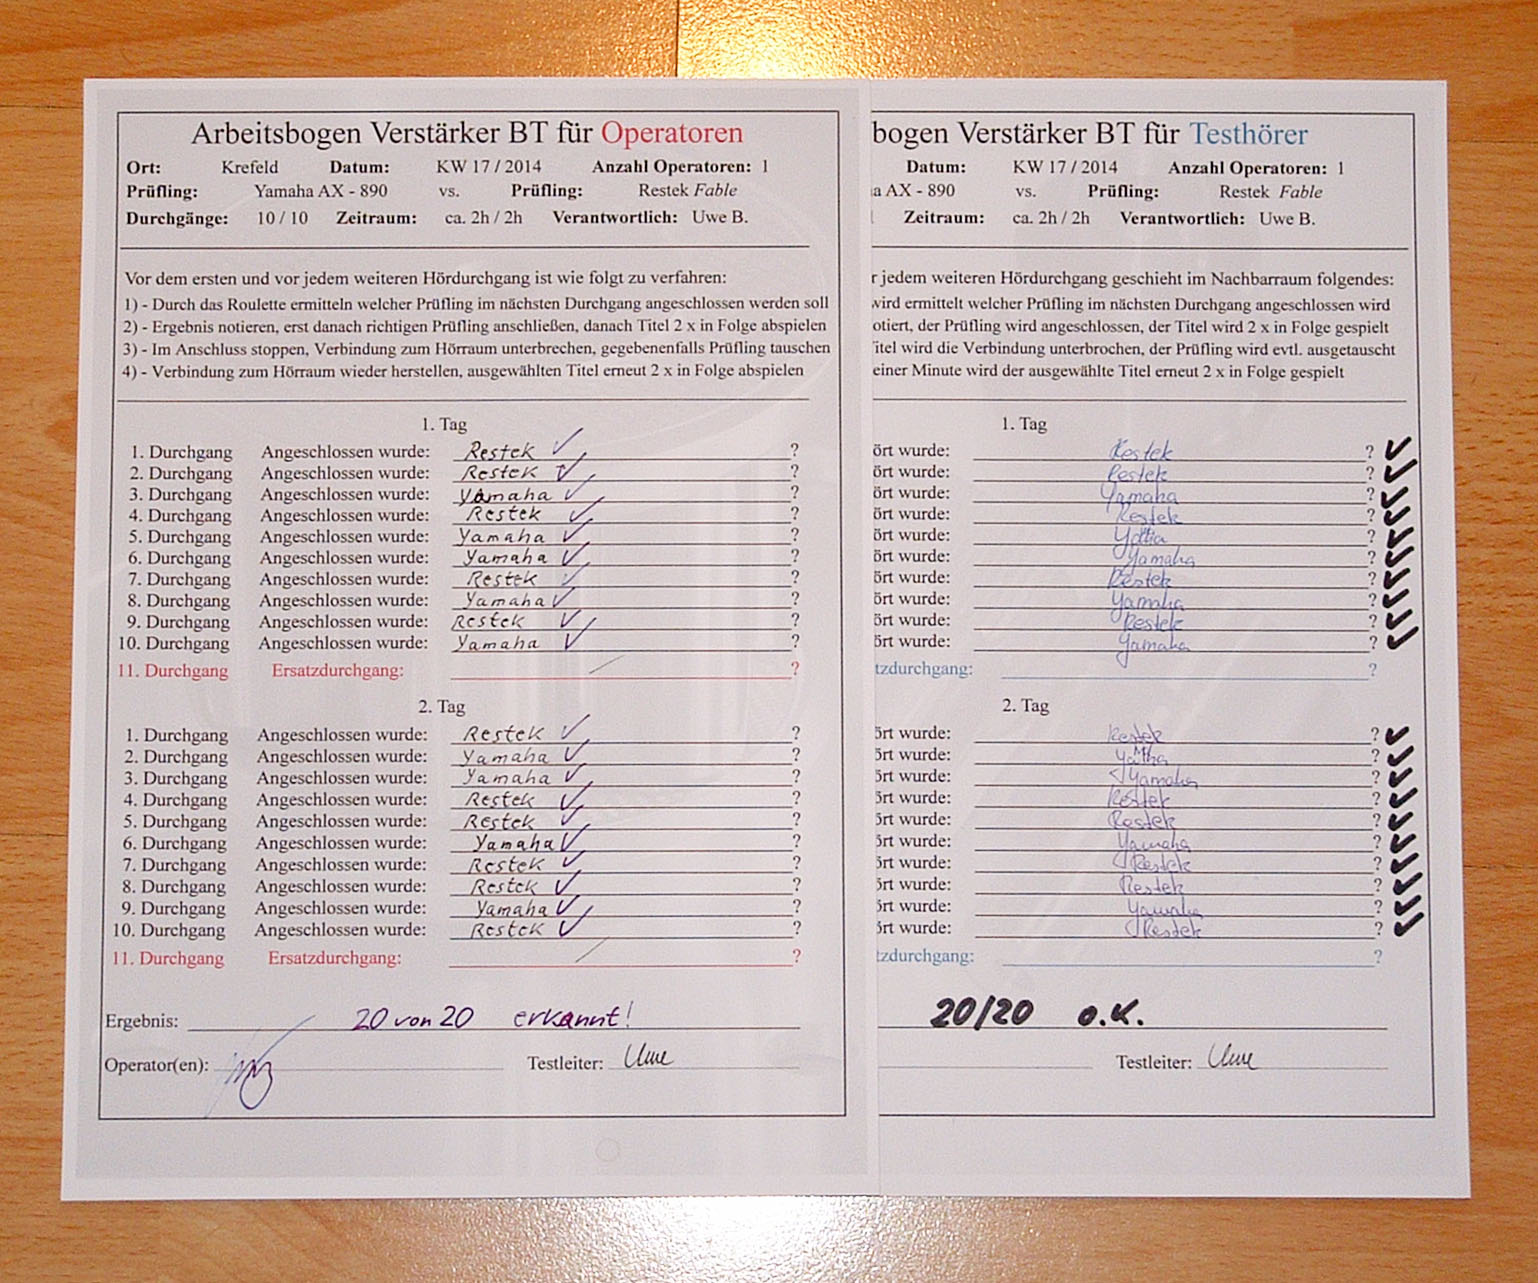 Arbeitsbogen Verstärker BT für Operatoren
Ort: Krefeld Datum: KW 17 / 2014 Anzahl Operatoren: 1
Prüfling: Yamaha AX - 890 vs. Prüfling: Restek Fable
Durchgänge: 10 / 10 Zeitraum: ca. 2h / 2h Verantwortlich: Uwe B.
Vor dem ersten und vor jedem weiteren Hördurchgang ist wie folgt zu verfahren:
1) - Durch das Roulette ermitteln welcher Prüfling im nächsten Durchgang angeschlossen werden soll
2) - Ergebnis notieren, erst danach richtigen Prüfling anschließen, danach Titel 2 x in Folge abspielen
3) - Im Anschluss stoppen, Verbindung zum Hörraum unterbrechen, gegebenenfalls Prüfling tauschen
4) - Verbindung zum Hörraum wieder herstellen, ausgewählten Titel erneut 2 x in Folge abspielen
1. Tag
1. Durchgang Angeschlossen wurde: Restek ✓ ?
2. Durchgang Angeschlossen wurde: Restek ✓ ?
3. Durchgang Angeschlossen wurde: Yamaha ✓ ?
4. Durchgang Angeschlossen wurde: Restek ✓ ?
5. Durchgang Angeschlossen wurde: Yamaha ✓ ?
6. Durchgang Angeschlossen wurde: Yamaha ✓ ?
7. Durchgang Angeschlossen wurde: Restek ✓ ?
8. Durchgang Angeschlossen wurde: Yamaha ✓ ?
9. Durchgang Angeschlossen wurde: Restek ✓ ?
10. Durchgang Angeschlossen wurde: Yamaha ✓ ?
11. Durchgang Ersatzdurchgang: / ?
2. Tag
1. Durchgang Angeschlossen wurde: Restek ✓ ?
2. Durchgang Angeschlossen wurde: Yamaha ✓ ?
3. Durchgang Angeschlossen wurde: Yamaha ✓ ?
4. Durchgang Angeschlossen wurde: Restek ✓ ?
5. Durchgang Angeschlossen wurde: Restek ✓ ?
6. Durchgang Angeschlossen wurde: Yamaha ✓ ?
7. Durchgang Angeschlossen wurde: Restek ✓ ?
8. Durchgang Angeschlossen wurde: Restek ✓ ?
9. Durchgang Angeschlossen wurde: Yamaha ✓ ?
10. Durchgang Angeschlossen wurde: Restek ✓ ?
11. Durchgang Ersatzdurchgang: / ?
Ergebnis: 20 von 20 erkannt!
Operator(en): Testleiter: Uwe
bogen Verstärker BT für Testhörer
Datum: KW 17 / 2014 Anzahl Operatoren: 1
a AX - 890 vs. Prüfling: Restek Fable
Zeitraum: ca. 2h / 2h Verantwortlich: Uwe B.
r jedem weiteren Hördurchgang geschieht im Nachbarraum folgendes:
wird ermittelt welcher Prüfling im nächsten Durchgang angeschlossen wird
otiert, der Prüfling wird angeschlossen, der Titel wird 2 x in Folge gespielt
Titel wird die Verbindung unterbrochen, der Prüfling wird evtl. ausgetauscht
einer Minute wird der ausgewählte Titel erneut 2 x in Folge gespielt
1. Tag
ört wurde: Restek ? ✓
ört wurde: Restek ? ✓
ört wurde: Yamaha ? ✓
ört wurde: Restek ? ✓
ört wurde: ? ✓
ört wurde: Yamaha ? ✓
ört wurde: Restek ? ✓
ört wurde: Yamaha ? ✓
ört wurde: Restek ? ✓
ört wurde: Yamaha ? ✓
tzdurchgang: ?
2. Tag
ört wurde: Restek ? ✓
ört wurde: ? ✓
ört wurde: Yamaha ? ✓
ört wurde: Restek ? ✓
ört wurde: Restek ? ✓
ört wurde: Yamaha ? ✓
ört wurde: Restek ? ✓
ört wurde: Restek ? ✓
ört wurde: Yamaha ? ✓
ört wurde: Restek ? ✓
tzdurchgang: ?
20/20 o.K.
Testleiter: Uwe